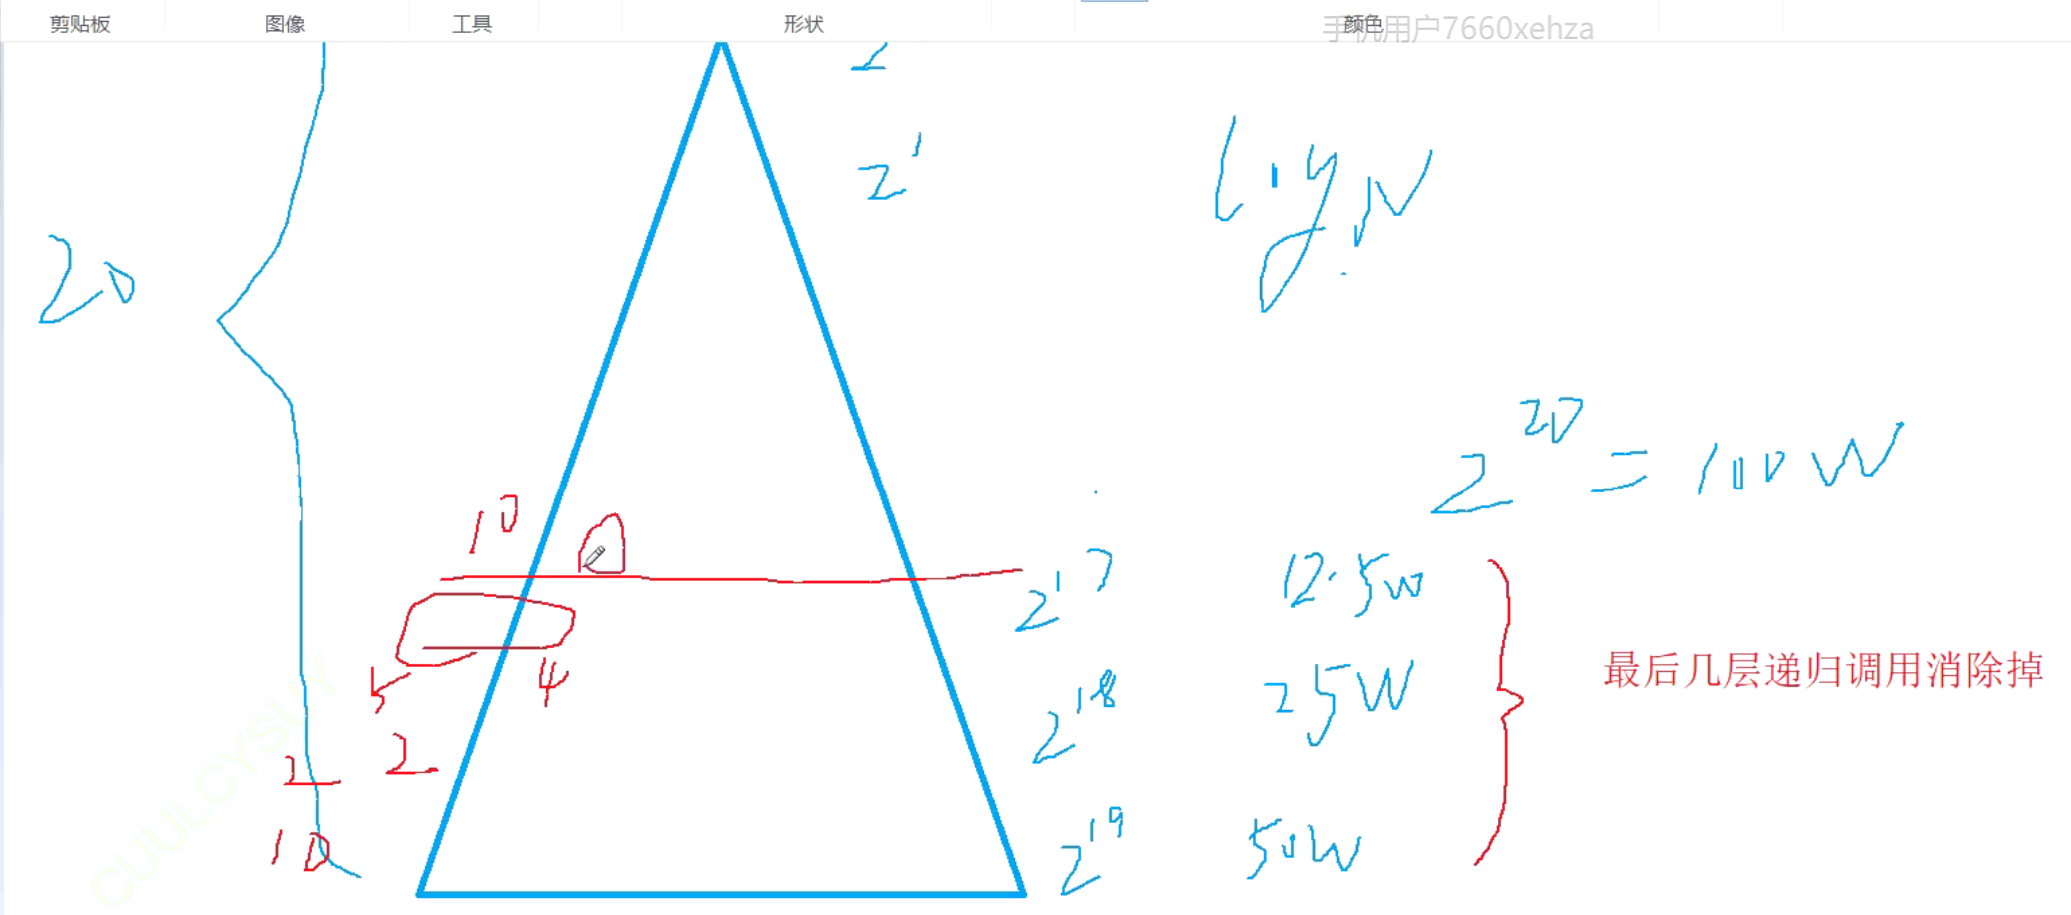 剪贴板 图像 工具 形状 颜色
手机用户7660xehza
2
2^1
logN
20
2^20 = 100W
10
2^17 12.5W
5 4
2^18 25W
最后几层递归调用消除掉
2
2
10
2^19 50W
CUULCYSUY